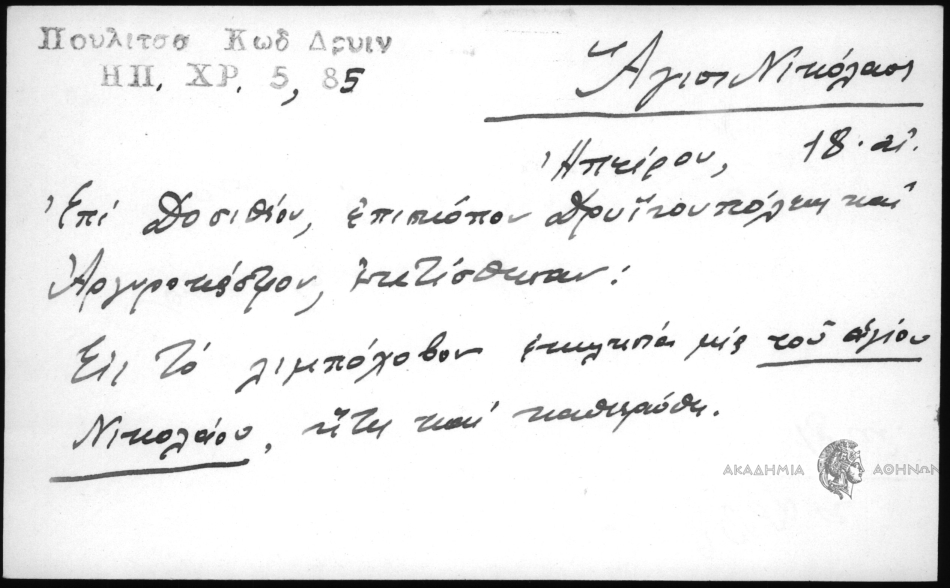 Πουλιτσα Κωδ Δρυιν
ΗΠ. ΧΡ. 5, 85
Ἅγιος Νικόλαος
Ἠπείρου, 18. αἰ.
Ἐπί Δοσιθέου, ἐπισκόπου Δρυϊνουπόλεως καί
Ἀργυροκάστρου, ἐκτίσθησαν:
Εἰς τό Λιμπόχοβον ἐκκλησία μία τοῦ ἁγίου
Νικολάου, ἥτις καί καθιερώθη.
ΑΚΑΔΗΜΙΑ ΑΘΗΝΩΝ